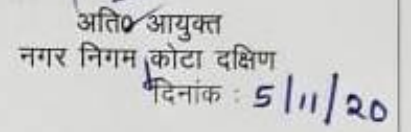 अति० आयुक्त
नगर निगम कोटा दक्षिण
दिनांक : 5/11/20